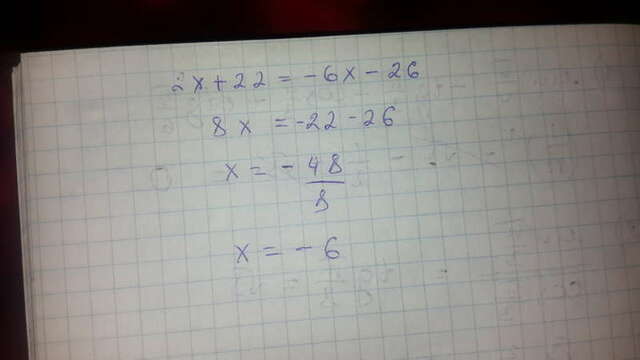 2x+22 = -6x-26
8x = -22-26
x = - 48/8
x = - 6